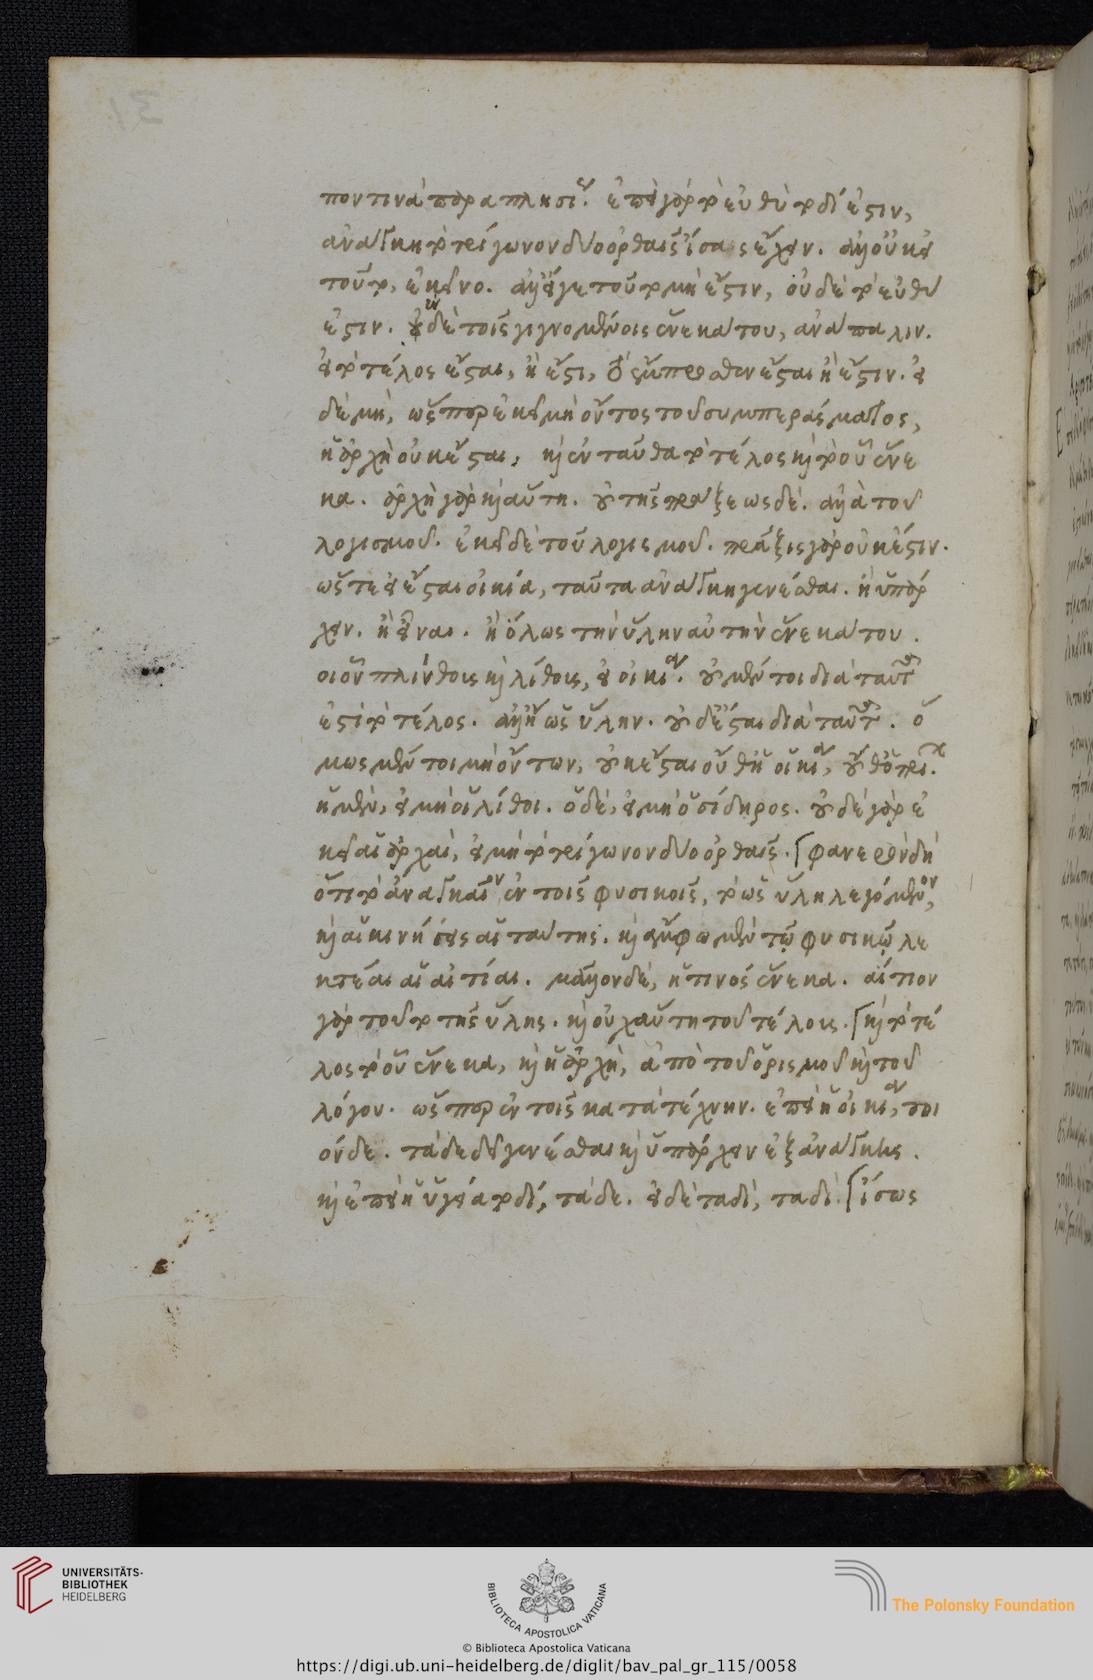 πον τινὰ παραπλησίως. ἐπεὶ γὰρ τὸ εὐθὺ τοδί ἐστιν,
ἀνάγκη τὸ τρίγωνον δύο ὀρθαῖς ἴσας ἔχειν. ἀλλ' οὐκ εἰ
τοῦτο, ἐκεῖνο. ἀλλ' εἴγε τοῦτο μὴ ἔστιν, οὐδὲ τὸ εὐθὺ
ἐστιν. ἐν δὲ τοῖς γιγνομένοις ἕνεκά του, ἀνάπαλιν.
εἰ τὸ τέλος ἔσται, ἢ ἔστι, καὶ τὸ ἔμπροσθεν ἔσται ἢ ἔστιν. εἰ
δὲ μὴ, ὥσπερ ἐκεῖ μὴ ὄντος τοῦ συμπεράσματος,
ἡ ἀρχὴ οὐκ ἔσται, καὶ ἐνταῦθα τὸ τέλος καὶ τὸ οὗ ἕνε
κα. ἀρχὴ γὰρ καὶ αὕτη. οὐ τῆς πράξεως δέ. ἀλλὰ τοῦ
λογισμοῦ. ἐκεῖ δὲ τοῦ λογισμοῦ. πράξις γὰρ οὐκ ἔστιν.
ὥστε εἰ ἔσται οἰκία, ταῦτα ἀνάγκη γενέσθαι. ἢ ὑπάρ
χειν. ἢ εἶναι. ἢ ὅλως τὴν ὕλην αὐτὴν ἕνεκά του.
οἷον πλίνθους καὶ λίθους, εἰ οἰκία. οὐ μέντοι διὰ ταῦτα
ἐστὶ τὸ τέλος. ἀλλ' ἢ ὡς ὕλην. οὐδ' ἔσται διὰ ταῦτα. ὅ
μως μέντοι μὴ ὄντων, οὐκ ἔσται οὔθ' ἡ οἰκία, οὔθ' ὁ πρίων.
ἡ μὲν, εἰ μὴ οἱ λίθοι. ὁ δὲ, εἰ μὴ ὁ σίδηρος. οὐδὲ γὰρ ἐ
κεῖ αἱ ἀρχαὶ, εἰ μὴ τὸ τρίγωνον δύο ὀρθαῖς. φανερὸν δὴ
ὅτι τὸ ἀναγκαῖον ἐν τοῖς φυσικοῖς, τὸ ὡς ὕλη λεγόμενον,
καὶ αἱ κινήσεις αἱ ταύτης. καὶ ἄμφω μὲν τῷ φυσικῷ λε
κτέαι αἱ αἰτίαι. μᾶλλον δὲ, ἡ τινὸς ἕνεκα. αἴτιον
γὰρ τοῦτο τῆς ὕλης. καὶ οὐχ αὕτη τοῦ τέλους. καὶ τὸ τέ
λος τὸ οὗ ἕνεκα, καὶ ἡ ἀρχὴ, ἀπὸ τοῦ ὁρισμοῦ καὶ τοῦ
λόγου. ὥσπερ ἐν τοῖς κατὰ τέχνην. ἐπεὶ ἡ οἰκία, τοι
όνδε. τάδε δεῖ γενέσθαι καὶ ὑπάρχειν ἐξ ἀνάγκης.
καὶ ἐπεὶ ἡ ὑγίεια τοδί, τάδε. εἰ δὲ ταδὶ, ταδὶ. ἴσως
UNIVERSITÄTS-
BIBLIOTHEK
HEIDELBERG
BIBLIOTECA APOSTOLICA VATICANA
The Polonsky Foundation
© Biblioteca Apostolica Vaticana
https://digi.ub.uni-heidelberg.de/diglit/bav_pal_gr_115/0058